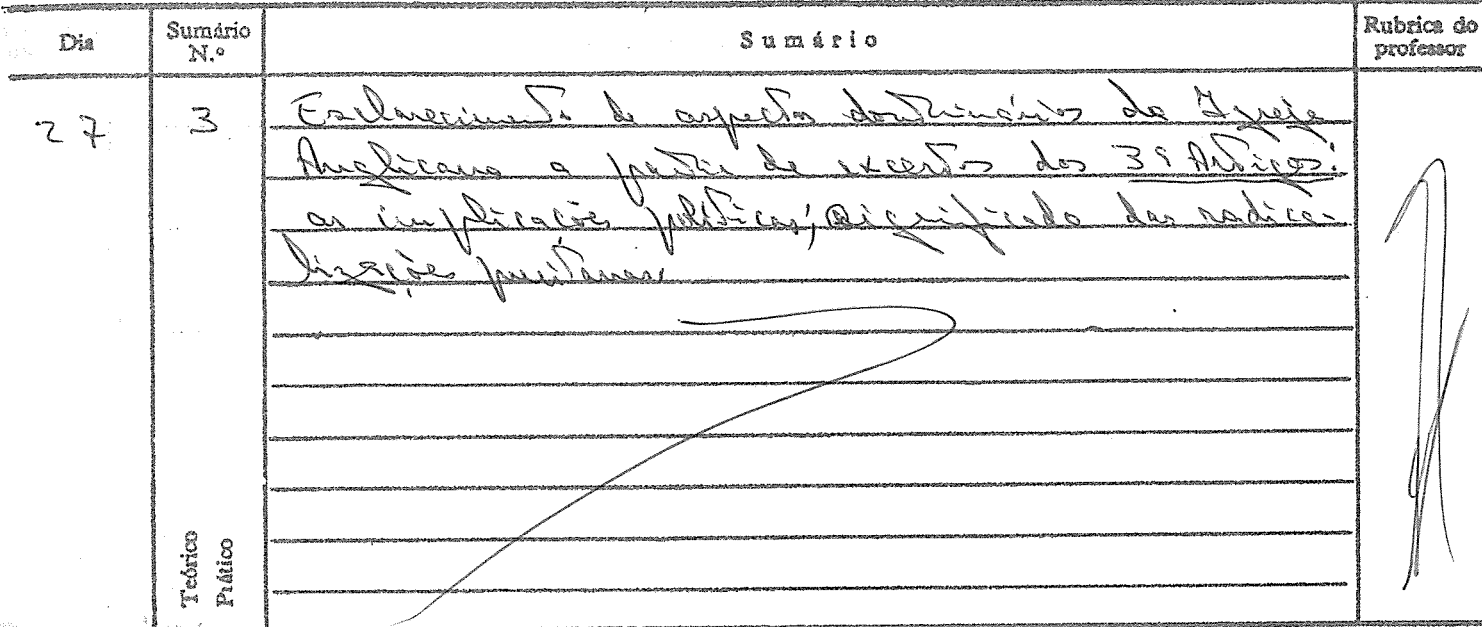 Dia
Sumário N.º
Sumário
Rubrica do professor
27
3
Esclarecimento de aspectos doutrinários da Igreja
Anglicana a partir de excertos dos 39 Artigos:
as implicações políticas; significado das radica-
lizações puritanas
Teórico
Prático